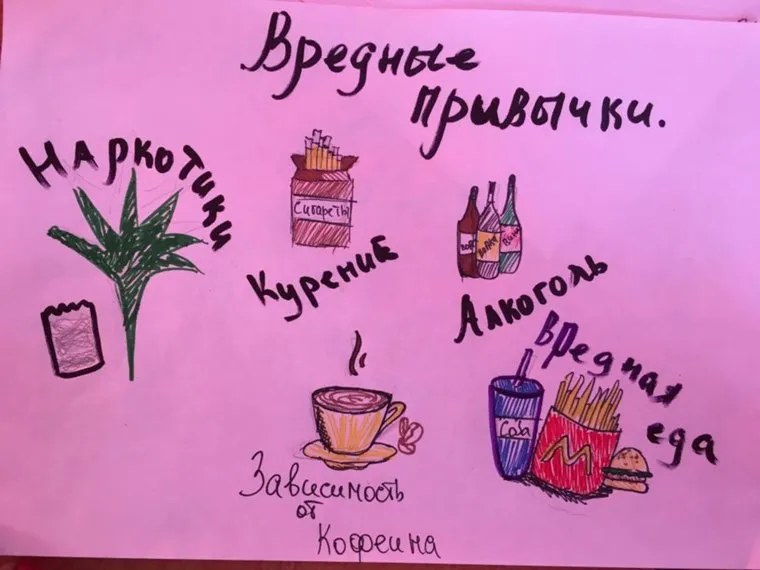 Вредные
привычки.
Наркотики
Сигареты
Курение
Алкоголь
Вредная
еда
Cola
Зависимость
от
Кофеина